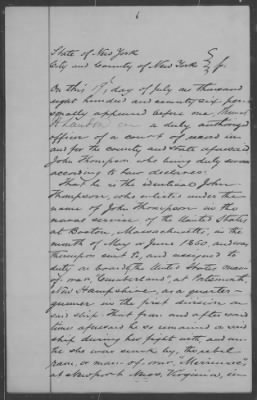 6
State of New York
City and County of New York } ss.
On this 19' day of July one thousand
eight hundred and seventy six per-
sonally appeared before me,
a duly authorized
officer of a court of record in
and for the county and state aforesaid
John Thompson, who being duly sworn
according to law declares:
That he is the identical John
Thompson, who enlisted under the
name of John Thompson in the
naval service of the United States
at Boston, Massachusetts, in the
month of May or June 1860, and was
thereupon sent to, and assigned to
duty on board the United States man-
of-war "Cumberland," at Portsmouth,
New Hampshire, as a quarter-
gunner in the first division on
said ship. That from and after said
time aforesaid he so remained on said
ship during her fight with, and un-
til she was sunk by, the rebel
ram or man-of-war "Merrimac"
at Newport News, Virginia, in